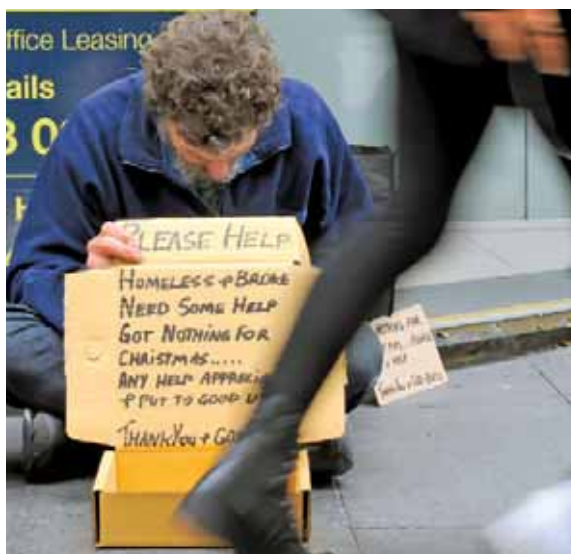 ffice Leasing
ails
PLEASE HELP
HOMELESS + BROKE
NEED SOME HELP
GOT NOTHING FOR
CHRISTMAS.....
ANY HELP APPRECI
+ PUT TO GOOD U
THANKYOU + GO